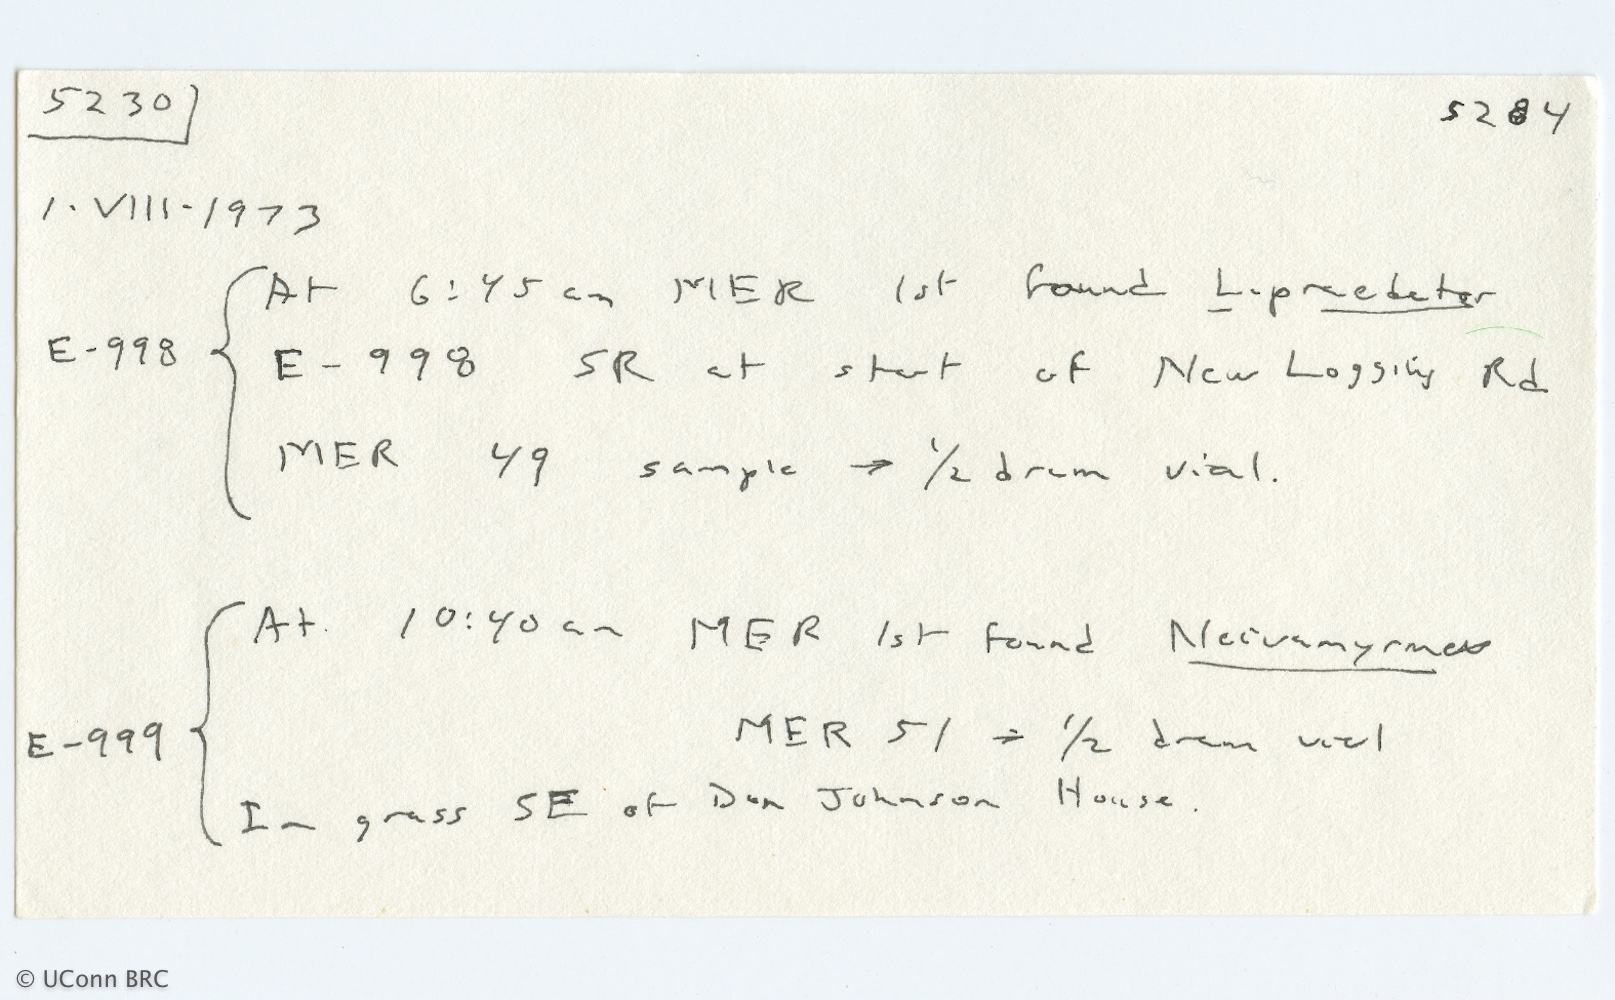 5230
5284
1·VIII·1973
At 6:45 am MER 1st found L. praedator
E-998
E-998 SR at start of New Logging Rd
MER 49 sample → 1/2 dram vial.
At. 10:40 am MER 1st found Neivamyrmex
E-999
MER 51 → 1/2 dram vial
In grass SE of Dan Johnson House.
© UConn BRC